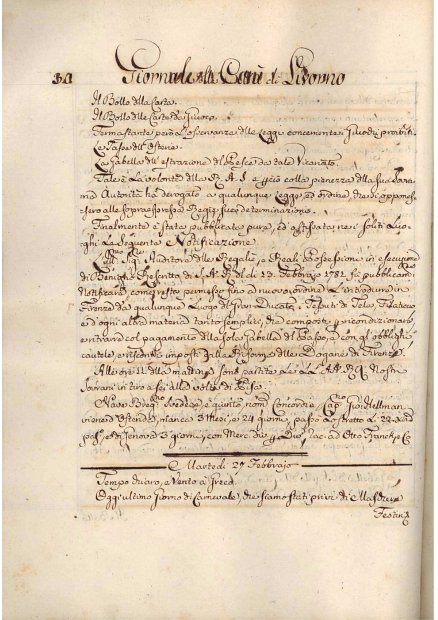 30 Giornale della Città di Livorno
Il Bollo della Carta.
Il Bollo delle Carte da Giuoco.
Ferma stante però l'osservanza delle Leggi concernenti i Giuochi proibiti.
Le Tasse dell'Osterie.
La Gabella dell'estrazione del Pesce da tale Vicariato.
Tale è la volontà della R. A. S. e però colla pienezza della sua Sovra
na Autorità ha derogato a qualunque Legge, ed ordine, che si oppones
sero alla sopraespressa Regia sua determinazione.
Finalmente è stata pubblicata pure, ed affissata nei soliti Luo
ghi la seguente Notificazione
Sig. Auditore delle Regalie, e Reali Possessioni in esecuzione
di Benigno Rescritto di S. A. R. del dì 23. Febbrajo 1782. fa pubblicam.
Notificare, come resta permesso fino a nuovo ordine l'introdurre in
Firenze da qualunque Luogo del Gran Ducato, Tessuti di Tele, Filaticcio
e d'ogni altra materia tanto semplici, che composte, per condizionarsi,
entrarvi col pagamento della sola Gabella del Passo, e con gli obblighi
cautele, e riscontri imposti dalla Riforma della Dogana di Firenze.
Alle ore 11 della mattina sono partite per le LL. AA. RR. Nostri
Sovrani in tiro a sei alla volta di Pisa.
Nave Svedese è giunto nom. Concordia Cap. Hellman
viene da Ostenda, manca 3 Mesi, e 24 giorni, passò lo stretto li
pass. e di Genova 3 giorni, con Merc. Rac. ad Otto Franck e C.
E Martedì 27 Febbrajo
Tempo chiaro, e Vento a Greco.
Oggi ultimo giorno di Carnevale, che siamo stati privi di Maschere
Festini